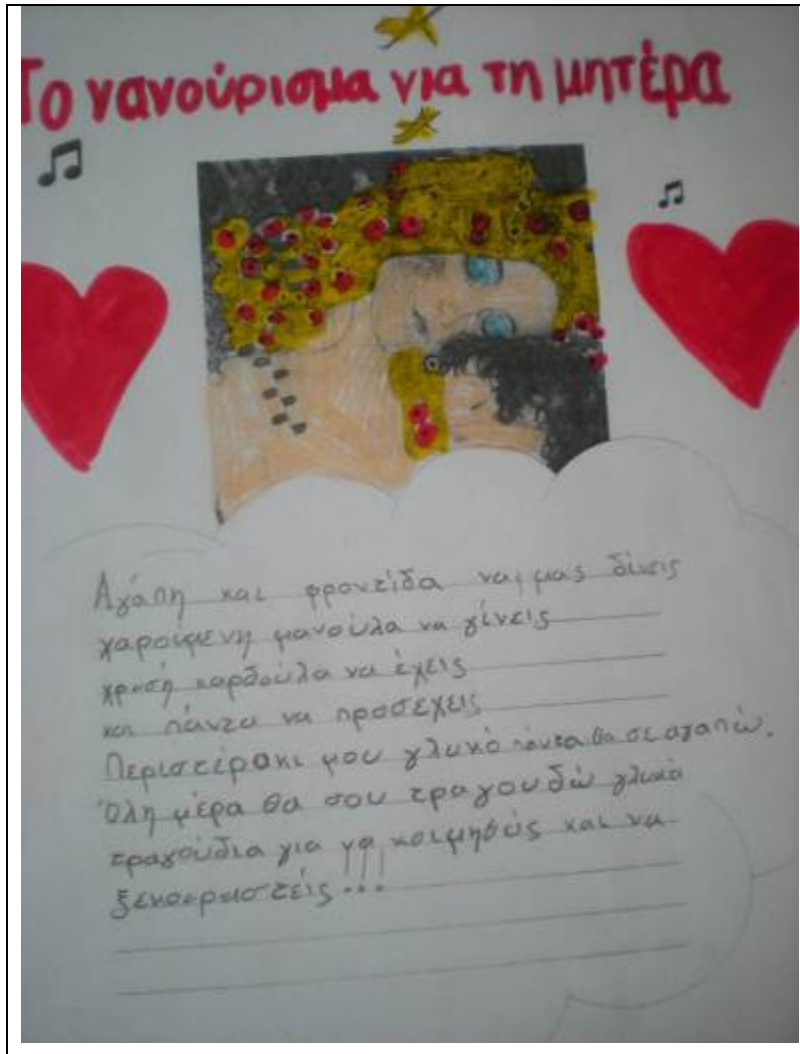 Το νανούρισμα για τη μητέρα
Αγάπη και φροντίδα να μας δίνεις
χαρούμενη μανούλα να γίνεις
χρυσή καρδούλα να έχεις
και πάντα να προσέχεις
Περιστεράκι μου γλυκό πάντα θα σε αγαπώ.
Όλη μέρα θα σου τραγουδώ γλυκά
τραγούδια για να κοιμηθείς και να
ξεκουραστείς !!!